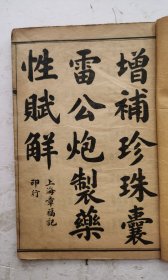 增補珍珠囊
雷公炮製藥
性賦解
上海章福記
印行